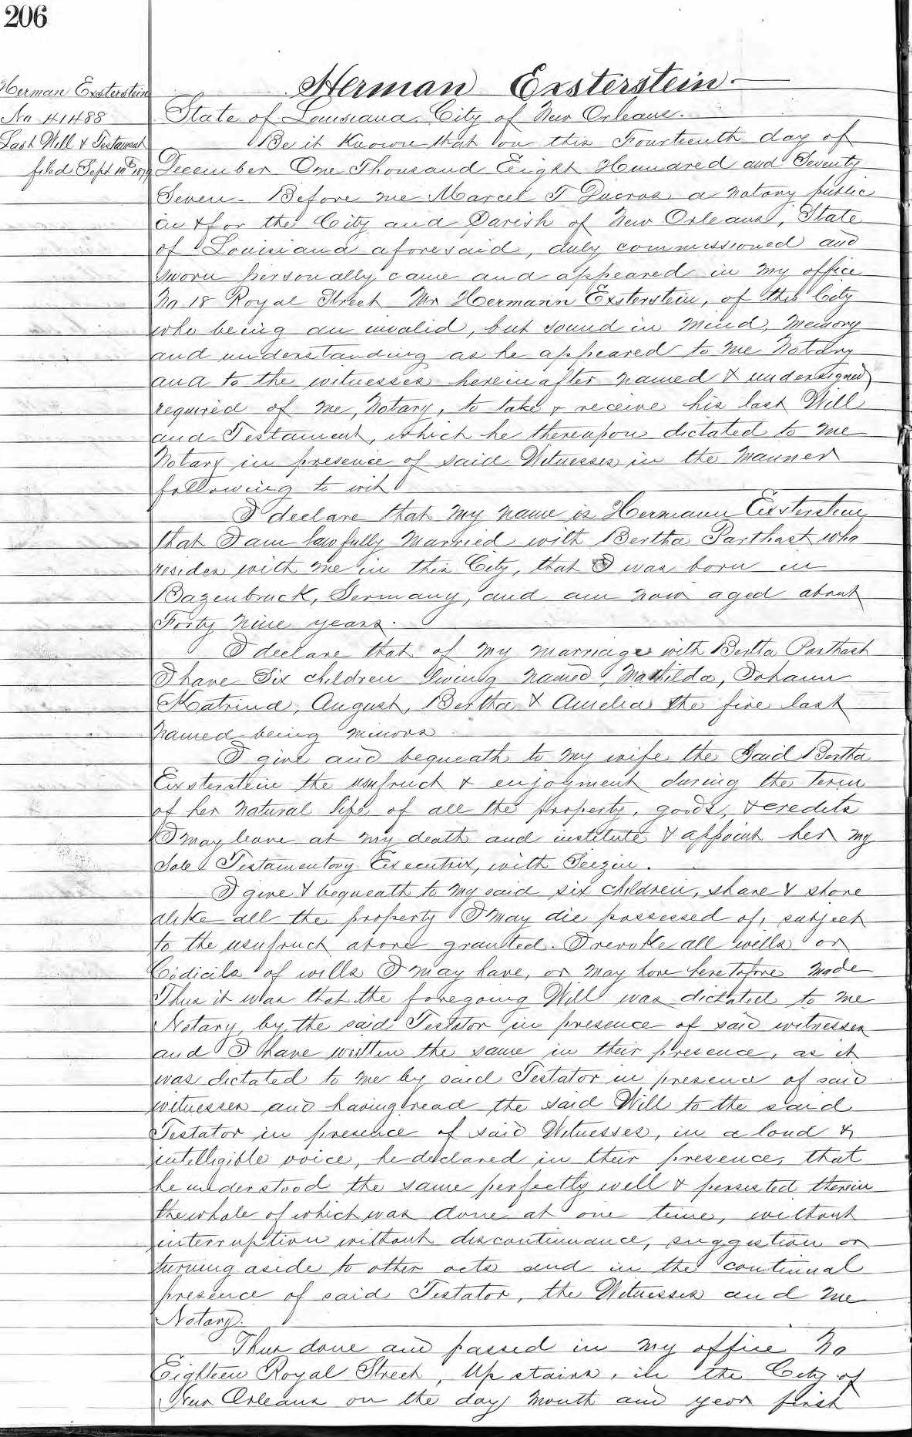 206
Herman Exsterstein
No 41488
Last Will & Testament
filed Sept
Herman Exsterstein
State of Louisiana. City of New Orleans.
Be it Known that on this Fourteenth day of
December One Thousand Eight Hundred and Seventy
Seven. Before me Marcel T Ducros a Notary public
in & for the City and Parish of New Orleans, State
of Louisiana aforesaid, duly commissioned and
sworn personally came and appeared in my office
No 18 Royal Street Mr Hermann Exsterstein, of this City
who being an invalid, but sound in mind, memory
and understanding as he appeared to me Notary
and to the witnesses hereinafter named & undersigned
required of me, Notary, to take & receive his last Will
and Testament, which he thereupon dictated to me
Notary in presence of said Witnesses in the manner
following to wit
I declare that my name is Hermann Exsterstein
that I am lawfully married with Bertha Parthast who
resides with me in this City, that I was born in
Bazenbruck, Germany, and am now aged about
Forty nine years.
I declare that of my marriage with Bertha Parthast
I have Six children living named, Mathilda, Johann
Katrina, August, Bertha & Amelia the five last
named being minors
I give and bequeath to my wife the Said Bertha
Exsterstein the usufruct & enjoyment during the term
of her natural life, of all the property, goods, & credits
I may leave at my death and institute & appoint her my
Sole Testamentory Executrix, with Seizin.
I give & bequeath to my said six children, share & share
alike all the property I may die possessed of, subject
to the usufruct above granted. I revoke all wills or
Codicils of wills I may have, or may have heretofore made
Thus it was that the foregoing Will was dictated to me
Notary, by the said Testator in presence of said witnesses
and I have written the same in their presence, as it
was dictated to me by said Testator in presence of said
witnesses and having read the said Will to the said
Testator in presence of said Witnesses, in a loud &
intelligible voice, he declared in their presence, that
he understood the same perfectly well & persisted therein
the whole of which was done at one time, without
interruption without discontinuance, suggestion or
turning aside to other acts and in the continual
presence of said Testator, the Witnesses and me
Notary.
Thus done and passed in my office No
Eighteen Royal Street, Up stairs, in the City of
New Orleans on the day month and year first